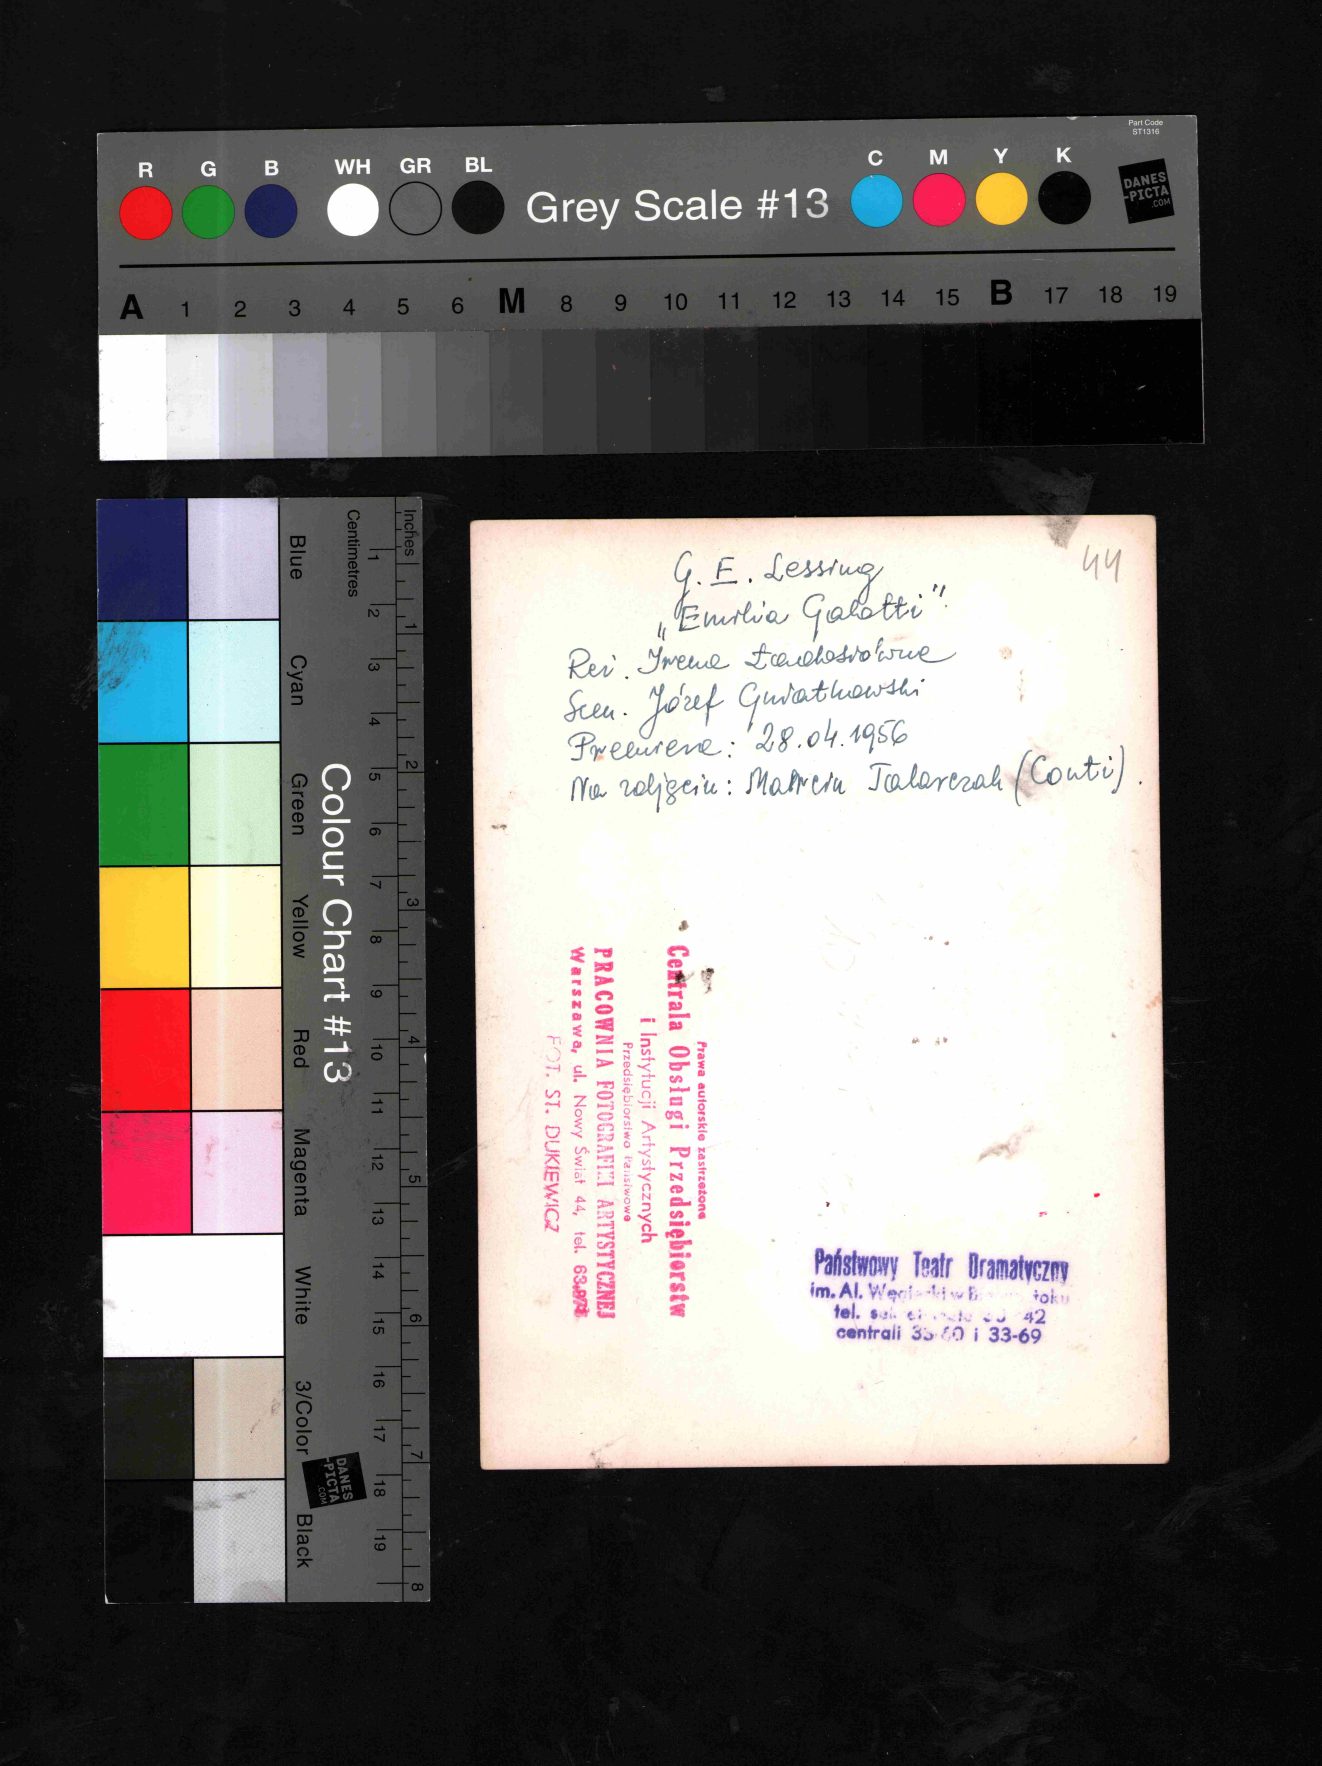 Part Code
ST1316
R G B WH GR BL
Grey Scale #13
C M Y K
DANES
-PICTA
.COM
A 1 2 3 4 5 6 M 8 9 10 11 12 13 14 15 B 17 18 19
Colour Chart #13
Blue
Cyan
Green
Yellow
Red
Magenta
White
3/Color
Black
Centimetres
1 2 3 4 5 6 7 8 9 10 11 12 13 14 15 16 17 18 19
Inches
1 2 3 4 5 6 7 8
DANES
-PICTA
.COM
44
G. E. Lessing
„Emilia Galotti"
Reż. Irena
Scen. Józef Gwiatkowski
Premiera: 28.04.1956
Na zdjęciu: Talarczak (Conti).
Prawa autorskie zastrzeżone
Centrala Obsługi Przedsiębiorstw
i Instytucji Artystycznych
Przedsiębiorstwo Państwowe
PRACOWNIA FOTOGRAFIKI ARTYSTYCZNEJ
Warszawa, ul. Nowy Świat 44, tel.
FOT. ST. DUKIEWICZ
Państwowy Teatr Dramatyczny
im. Al.
tel. 42
centrali i 33-69